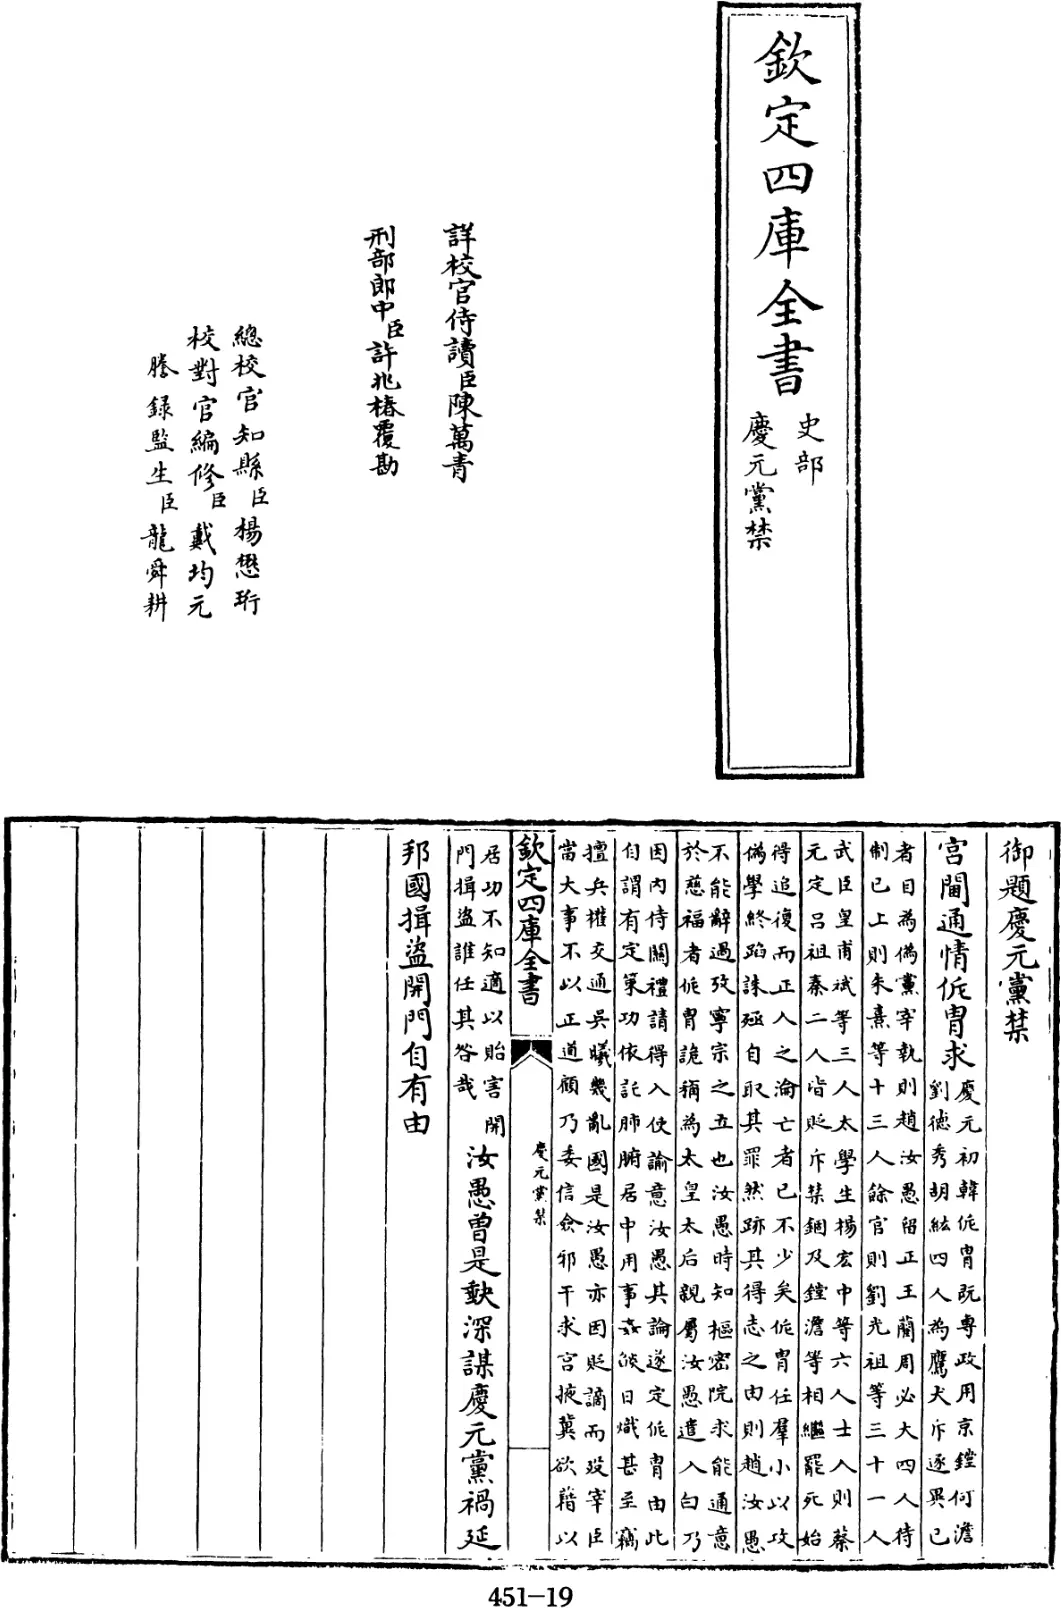 欽定四庫全書
史部
慶元黨禁
詳校官侍讀臣陳萬青
刑部郎中臣許兆椿覆勘
總校官知縣臣楊懋珩
校對官編修臣戴均元
謄錄監生臣龍舜耕
御題慶元黨禁
宮閫通情侂胄求
慶元初韓侂胄既專政用京鏜何澹
劉德秀胡紘四人為鷹犬斥逐異己
者目為偽黨宰執則趙汝愚留正王藺周必大四人待
制已上則朱熹等十三人餘官則劉光祖等三十一人
武臣皇甫斌等三人太學生楊宏中等六人士人則蔡
元定呂祖泰二人皆貶斥禁錮及鏜澹等相繼罷死始
得追復而正人之淪亡者已不少矣侂胄任羣小以攻
偽學終蹈誅殛自取其罪然跡其得志之由則趙汝愚
不能辭過攷寧宗之立也汝愚時知樞密院求能通意
於慈福者侂胄詭稱為太皇太后親屬汝愚遣入白乃
因內侍關禮請得入使諭意汝愚其論遂定侂胄由此
自謂有定策功依託肺腑居中用事姦燄日熾甚至竊
擅兵權交通吳曦幾亂國是汝愚亦因貶謫而歿宰臣
當大事不以正道顧乃委信僉邪干求宮掖冀欲藉以
欽定四庫全書
慶元黨禁
居功不知適以貽害開
門揖盜誰任其咎哉
汝愚曾是缺深謀慶元黨禍延
邦國揖盜開門自有由
451-19